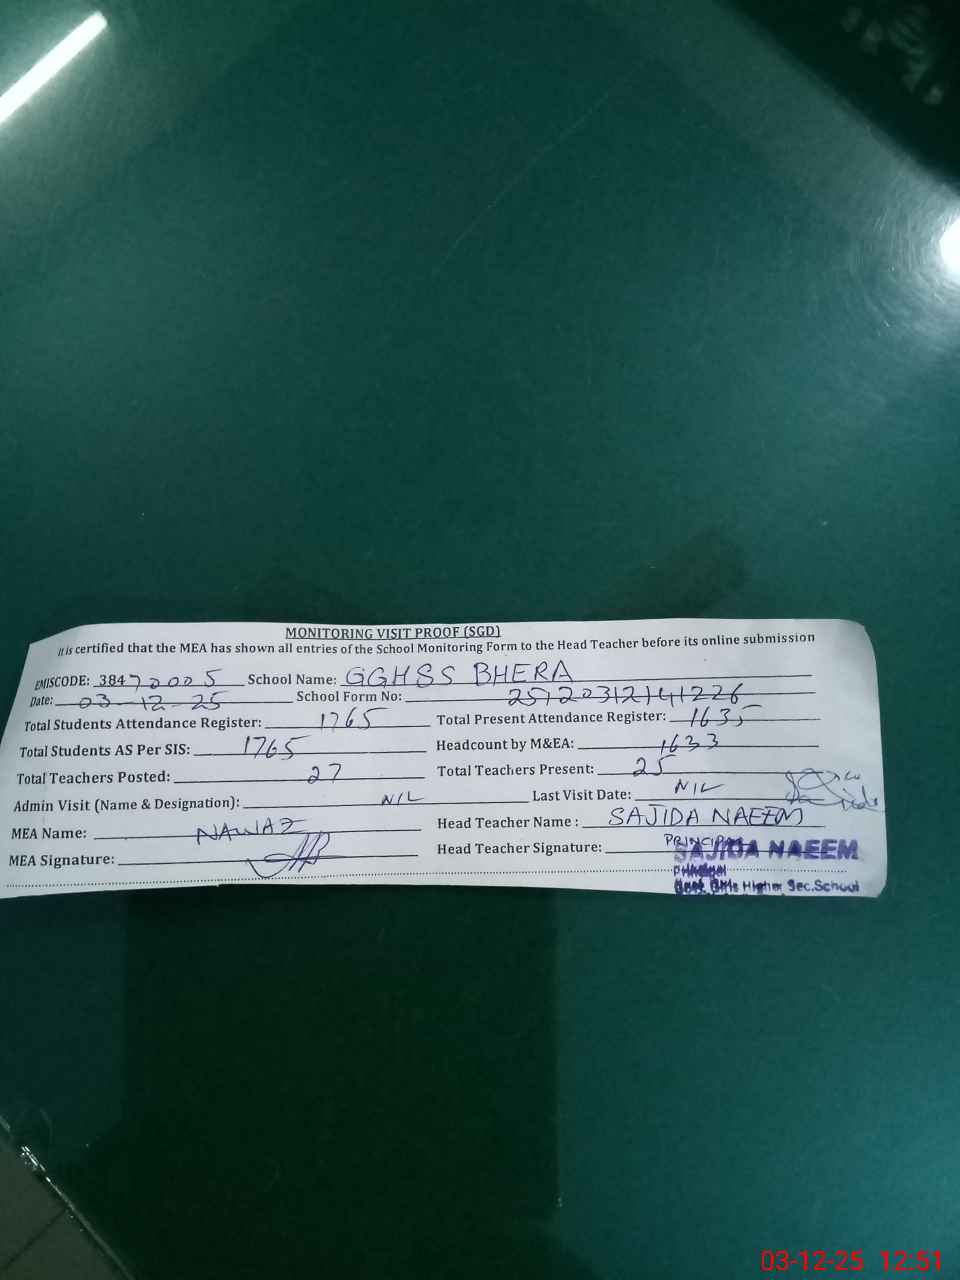 MONITORING VISIT PROOF (SGD)
It is certified that the MEA has shown all entries of the School Monitoring Form to the Head Teacher before its online submission
EMISCODE: 38470005 School Name: GGHSS BHERA
Date: 03-12-25 School Form No:
Total Students Attendance Register: 1765 Total Present Attendance Register: 1635
Total Students AS Per SIS: 1765 Headcount by M&EA: 1633
Total Teachers Posted: 27 Total Teachers Present: 25
Admin Visit (Name & Designation): NIL Last Visit Date: NIL
MEA Name: NAWAZ Head Teacher Name : SAJIDA NAEEM
MEA Signature: Head Teacher Signature: PRINCIPAL
SAJIDA NAEEM
Principal
Govt. Girls Higher Sec.School
03-12-25 12:51